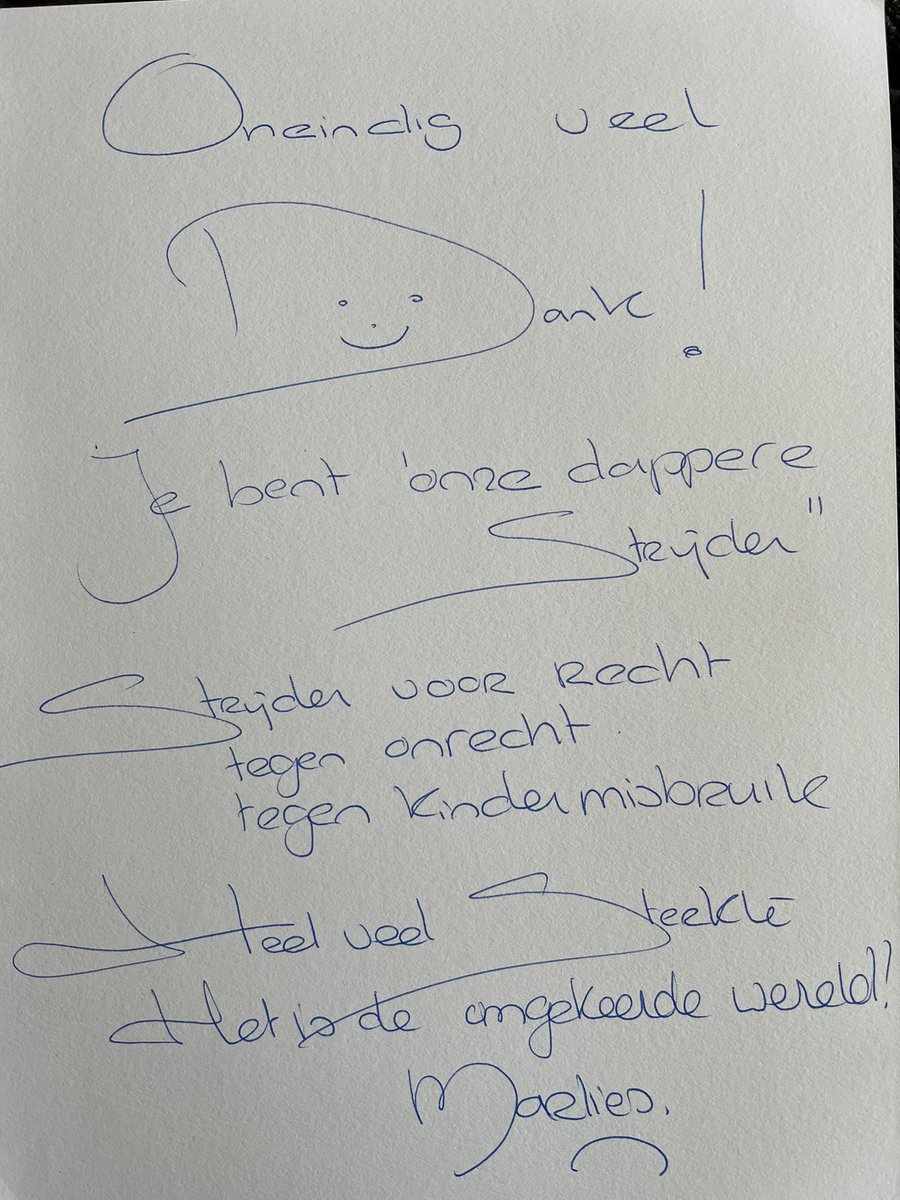 Oneindig veel
Dank!
Je bent 'onze dappere
Strijder"
Strijder voor recht
tegen onrecht
tegen kindermisbruik
Heel veel Sterkte
Het is de omgekeerde wereld!
Marlies.